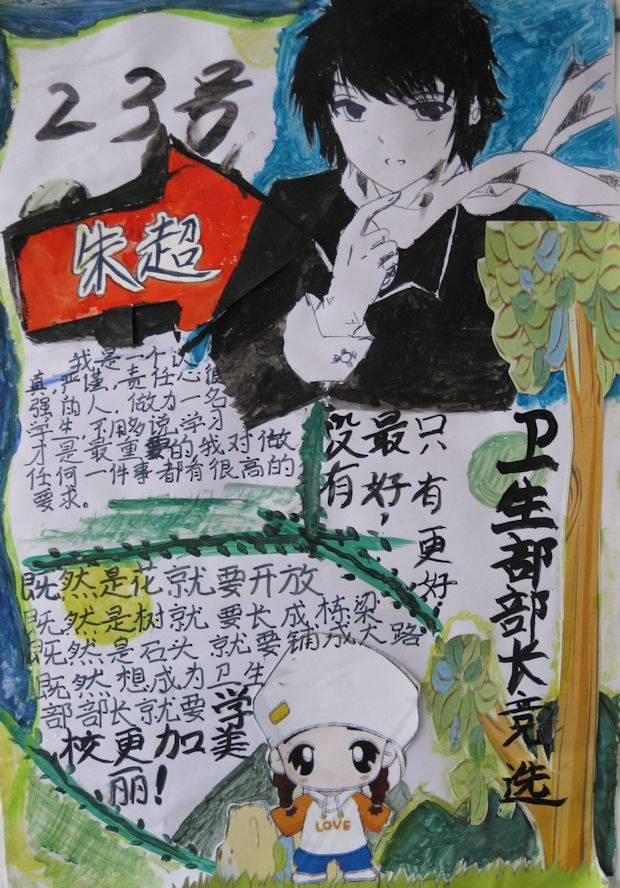 23号
朱超
我是一个认
真,严谨,责任心很
强的人,做为一名
学生,不用多说学习
才是最重要的,我对做
任何一件事都有很高的
要求。
没有
最好,
只有更好!
卫生部部长竞选
既然是花就要开放
既然是树就要长成栋梁
既然是石头就要铺成大路
既然想成为卫生
部部长就要学
校更加美
丽!
LOVE